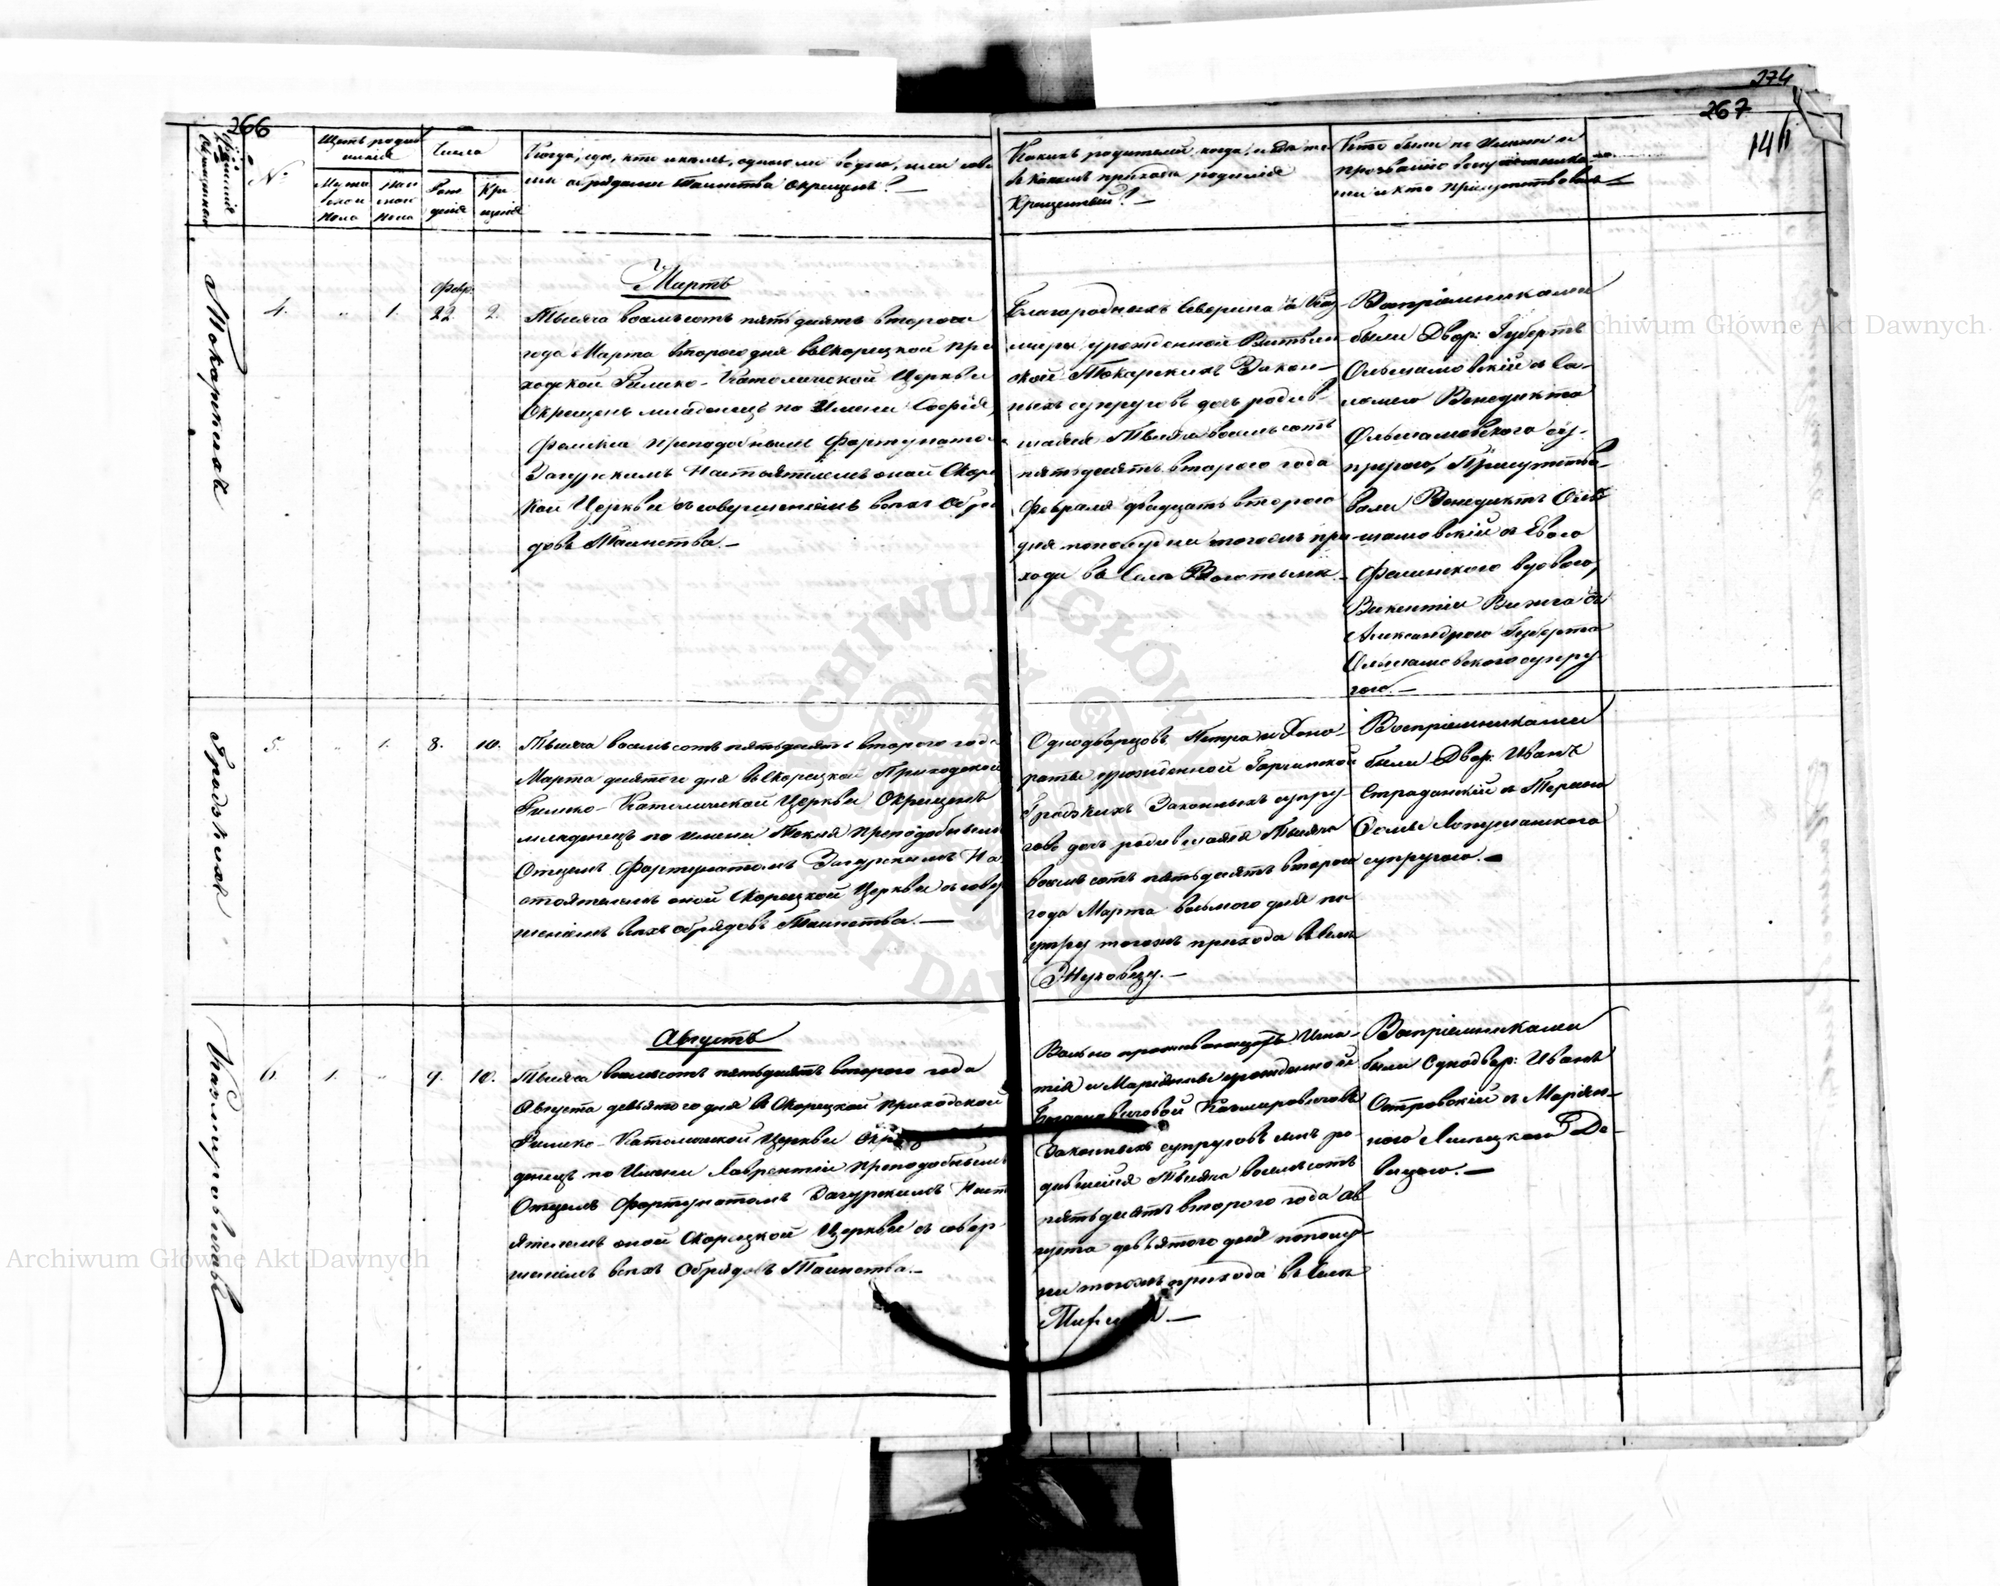 266
274
267
141
№
Щетъ родив
шихся
Числа
Когда, где, кто и кемъ, однаю ли водою, или со всѣ
ми обрядами таинства окрещенъ? —
Какихъ родителей, когда, и
въ какомъ приходѣ родился
Крещенный? —
Кто были по имени и
прозванію воспріемника
ми и кто присутствовалъ
Мужс
скаго
пола
Жен
скаго
пола
Рож
денія
Кре
щенія
Токарская
4.
1.
Февр.
22.
2.
Мартъ
Тысяча восемьсотъ пятьдесятъ втораго
года Марта втораго дня въ Корецкой При
ходской Римско-Католической Церкви
Окрещенъ младенецъ по Имени Софія,
Фелиція преподобнымъ Фортунатомъ
Загурскимъ Настоятелемъ оной Корец
кой Церкви съ совершеніемъ всѣхъ Обря
довъ Таинства. —
Благородныхъ Северина и Каз
миры урожденной Витвин
ской Токарскихъ Закон-
ныхъ супруговъ дочь родив-
шаяся Тысяча восемьсотъ
пятьдесятъ втораго года
Февраля двадцать втораго
дня пополудни тогожъ при
хода въ Селѣ
Воспріемниками
были Двор: Губертъ
Ольшамовскій съ Са-
ломею Бенедикта
Ольшамовского су-
пругою, Присутство-
вали Бенедиктъ Оль-
шамовскій съ Евою
вдовою,
Викентій съ
Александрою Губерта
Ольшамовского супру-
гою. —
5.
1.
8.
10.
Тысяча восемьсотъ пятьдесятъ втораго года
Марта десятого дня въ Корецкой Приходской
Римско-Католической Церкви Окрещенъ
младенецъ по имени Текля преподобнымъ
Отцемъ Фортунатомъ Загурскимъ На
стоятелемъ оной Корецкой Церкви съ совер
шеніемъ всѣхъ обрядовъ Таинства. —
Однодворцовъ Петра и Гоно-
раты урожденной
Законныхъ супру-
говъ дочь родившаяся Тысяча
восемьсотъ пятьдесятъ втораго
года Марта восьмого дня по
утру тогожъ прихода въ Селѣ
Воспріемниками
были Двор: Иванъ
Страданскій съ Терезіею
супругою. —
Казмировичъ
6.
1.
9.
10.
Августъ
Тысяча восемьсотъ пятьдесятъ втораго года
Августа девятого дня въ Корецкой приходской
Римско-Католической Церкви
денецъ по Имени Лаврентій преподобнымъ
Отцемъ Фортунатомъ Загурскимъ Насто
ятелемъ оной Корецкой Церкви съ совер
шеніемъ всѣхъ Обрядовъ Таинства. —
Вольно проживающихъ Игна-
тія и Маріянны урожденной
Казмировичовъ
Законныхъ супруговъ сынъ ро-
дившійся Тысяча восемьсотъ
пятьдесятъ втораго года Ав
густа девятого дня пополуд-
ни тогожъ прихода въ Селѣ
Воспріемниками
были Однодвор: Иванъ
Островскій съ Маріян-
ною Липецкою Дѣ-
вицею. —
Archiwum Główne Akt Dawnych
Archiwum Główne Akt Dawnych
ARCHIWUM GŁÓWNE AKT DAWNYCH